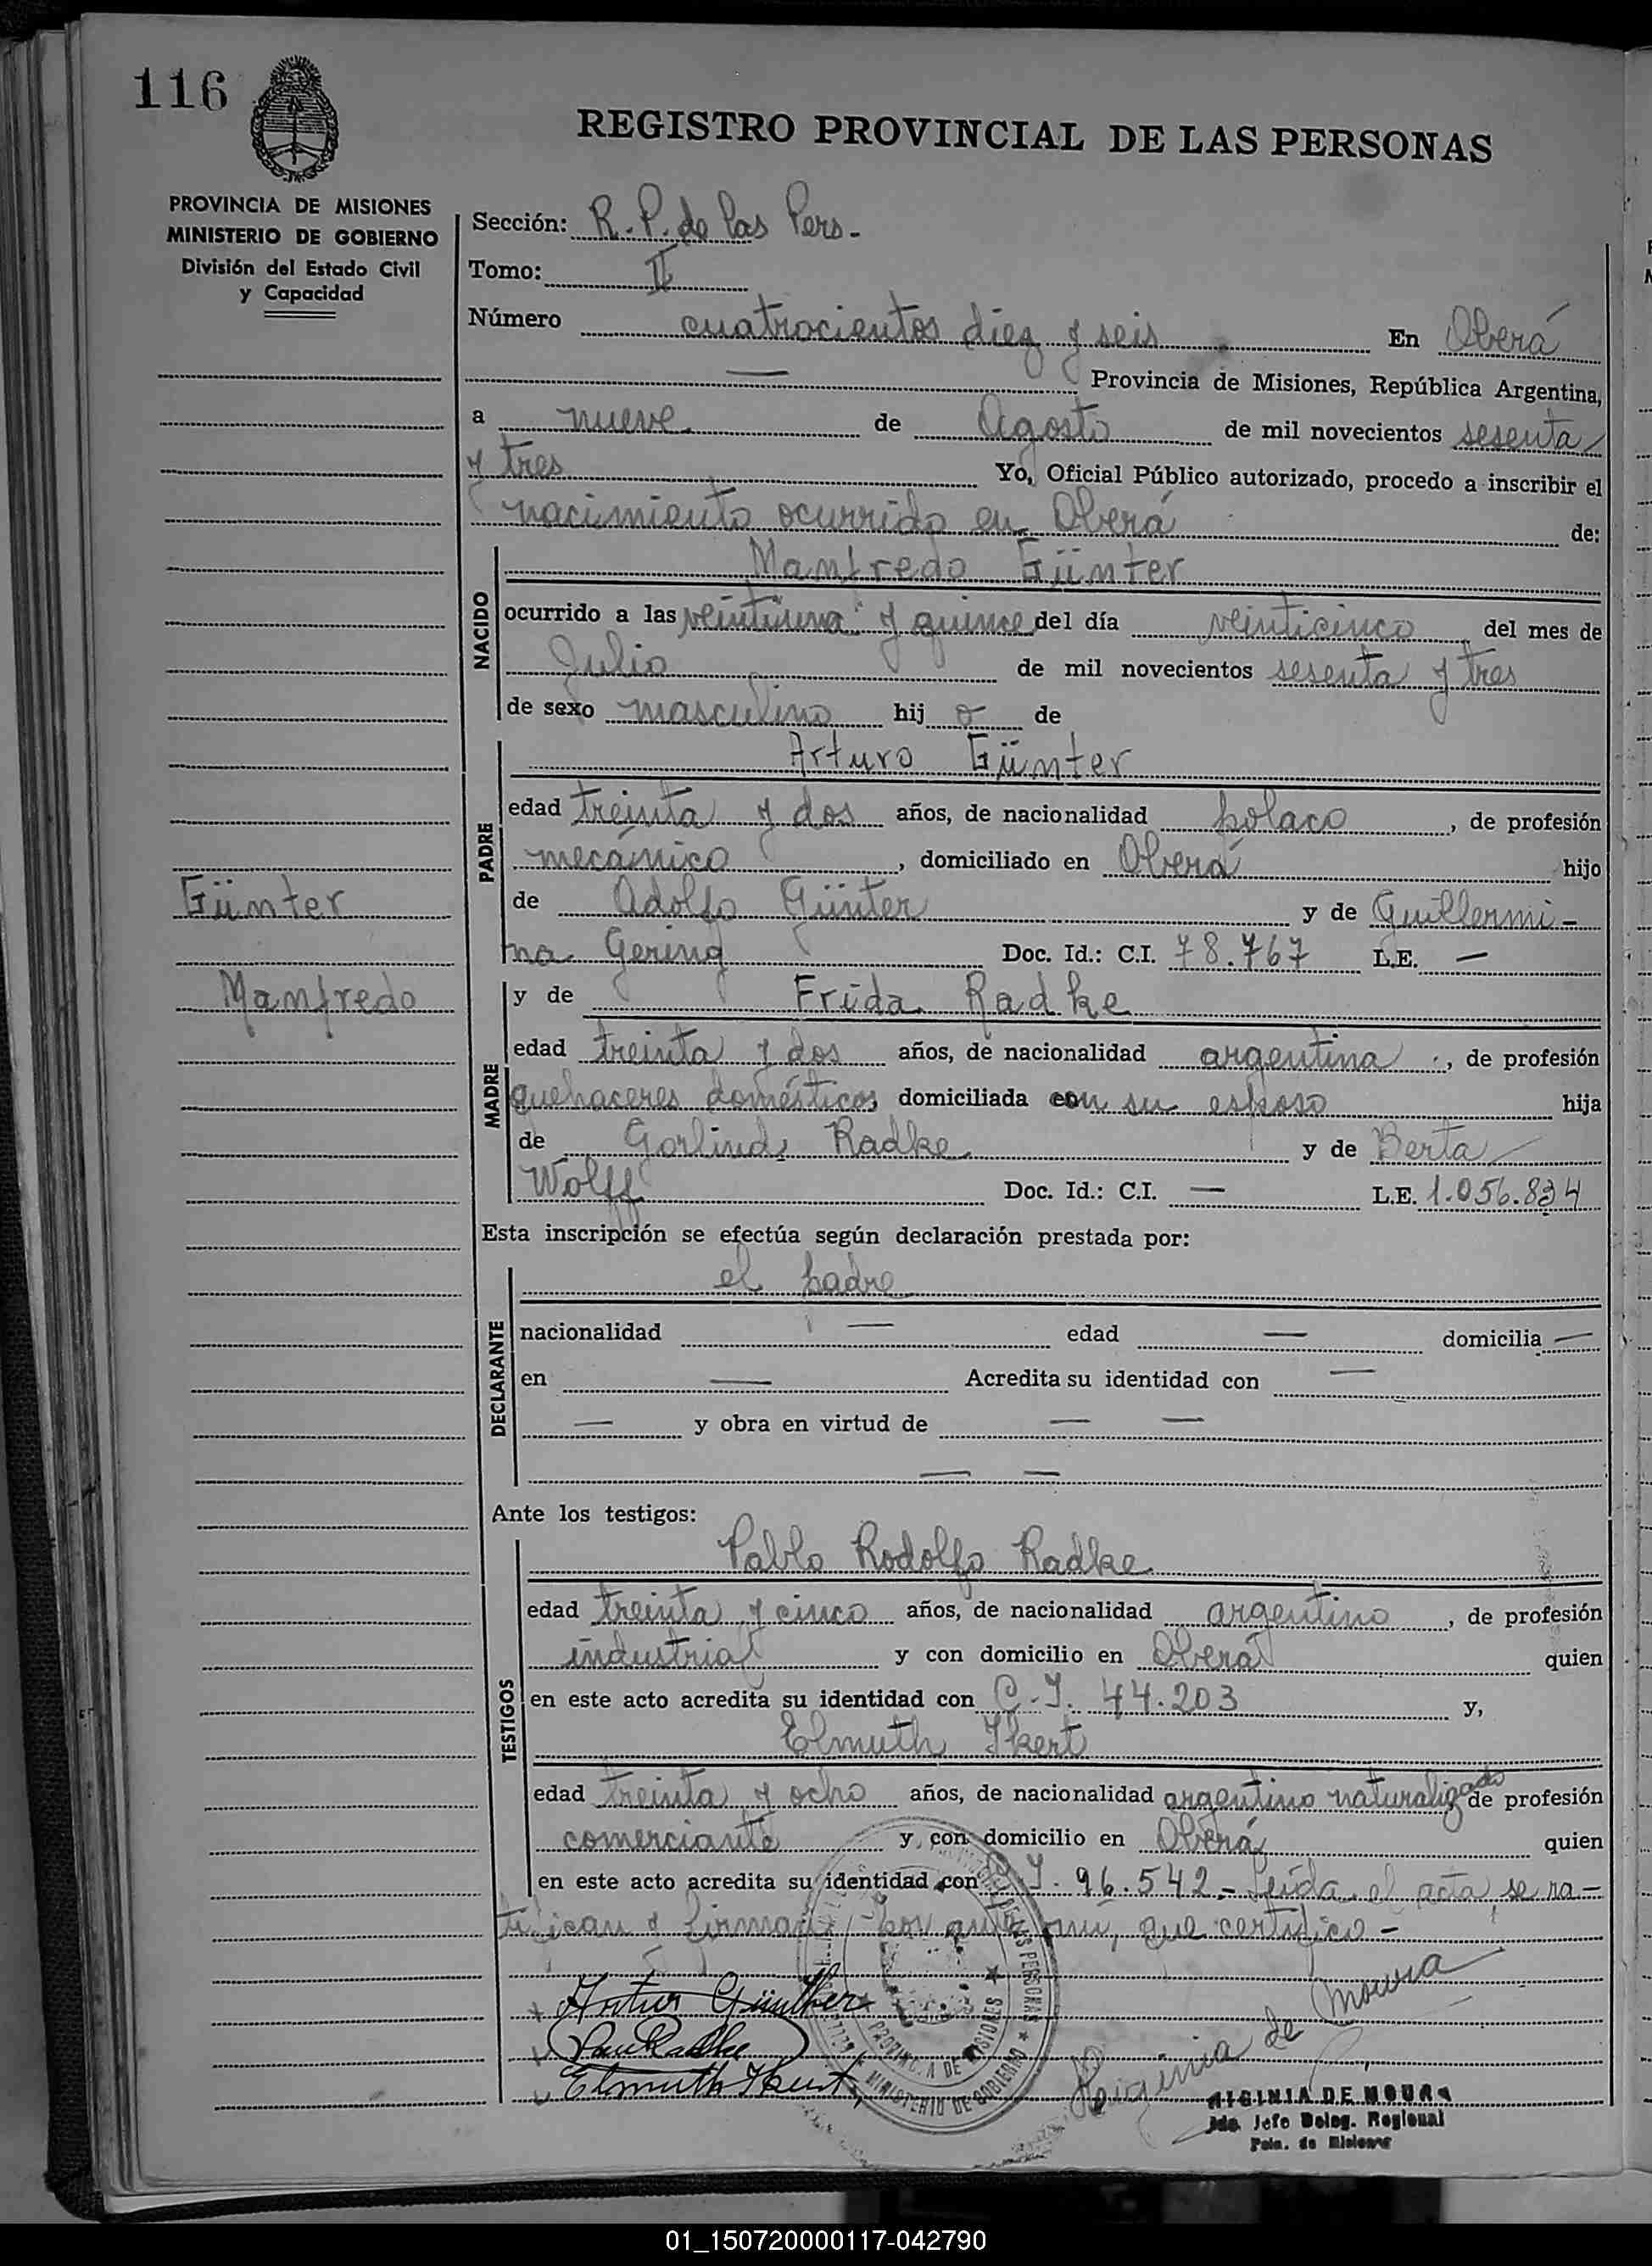 116
REGISTRO PROVINCIAL DE LAS PERSONAS
PROVINCIA DE MISIONES
MINISTERIO DE GOBIERNO
División del Estado Civil
y Capacidad
Sección: R.P. de las Pers.-
Tomo: II
Número cuatrocientos diez y seis En Oberá
— Provincia de Misiones, República Argentina,
a nueve de Agosto de mil novecientos sesenta
y tres Yo, Oficial Público autorizado, procedo a inscribir el
nacimiento ocurrido en Oberá de:
NACIDO
Manfredo Günter
ocurrido a las veintiuna y quince del día veinticinco del mes de
Julio de mil novecientos sesenta y tres
de sexo masculino hijo de
PADRE
Arturo Günter
edad treinta y dos años, de nacionalidad polaco, de profesión
mecánico, domiciliado en Oberá hijo
Günter
de Adolfo Günter y de Guillermi-
na Gering Doc. Id.: C.I. 78.767 L.E. —
Manfredo
MADRE
y de Frida Radke
edad treinta y dos años, de nacionalidad argentina, de profesión
quehaceres domésticos domiciliada con su esposo hija
de Radke y de Berta
Wolff Doc. Id.: C.I. — L.E. 1.056.834
Esta inscripción se efectúa según declaración prestada por:
DECLARANTE
el padre
nacionalidad — edad — domicilia —
en — Acredita su identidad con —
— y obra en virtud de — —
— —
Ante los testigos:
TESTIGOS
Pablo Rodolfo Radke
edad treinta y cinco años, de nacionalidad argentino, de profesión
industrial y con domicilio en Oberá quien
en este acto acredita su identidad con C.I. 44.203 y,
Elmuth Ikert
edad treinta y ocho años, de nacionalidad argentino naturalizado de profesión
comerciante y con domicilio en Oberá quien
en este acto acredita su identidad con C.I. 96.542.- Leída el acta, se ra-
tifican y firman por ante mi, que certifico-
Artur Günther
Paul Radke
Elmuth Ikert
Virginia de Moura
PROVINCIA DE MISIONES
MINISTERIO DE GOBIERNO
VIRGINIA DE MOURA
Jefe Deleg. Regional
Pcia. de Misiones
01_150720000117-042790